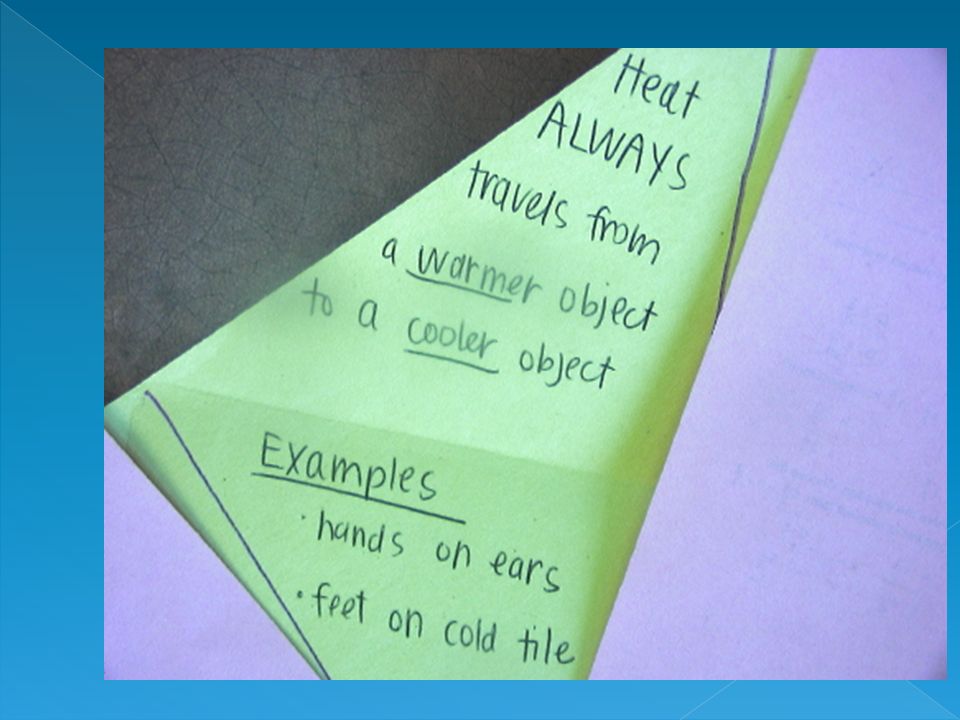 Heat
ALWAYS
travels from
a warmer object
to a cooler object
Examples
· hands on ears
· feet on cold tile